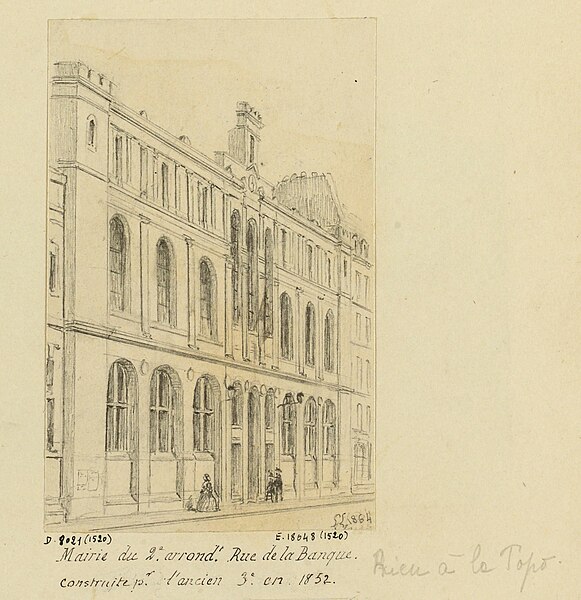 1864
D. 9021 (1520)
E. 18648 (1520)
Mairie du 2e. arrondt. Rue de la Banque.
construite pr. l'ancien 3e. en. 1852.
Rien à la Topo.